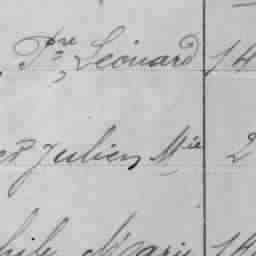 Pre Léonard 14
Julien Mie 2
Marie 14